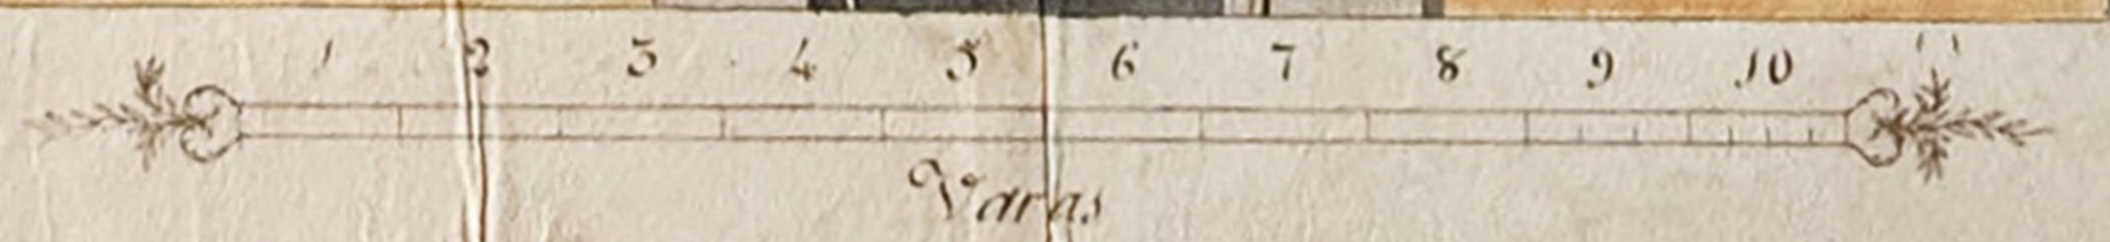 1 2 3 4 5 6 7 8 9 10
Varas